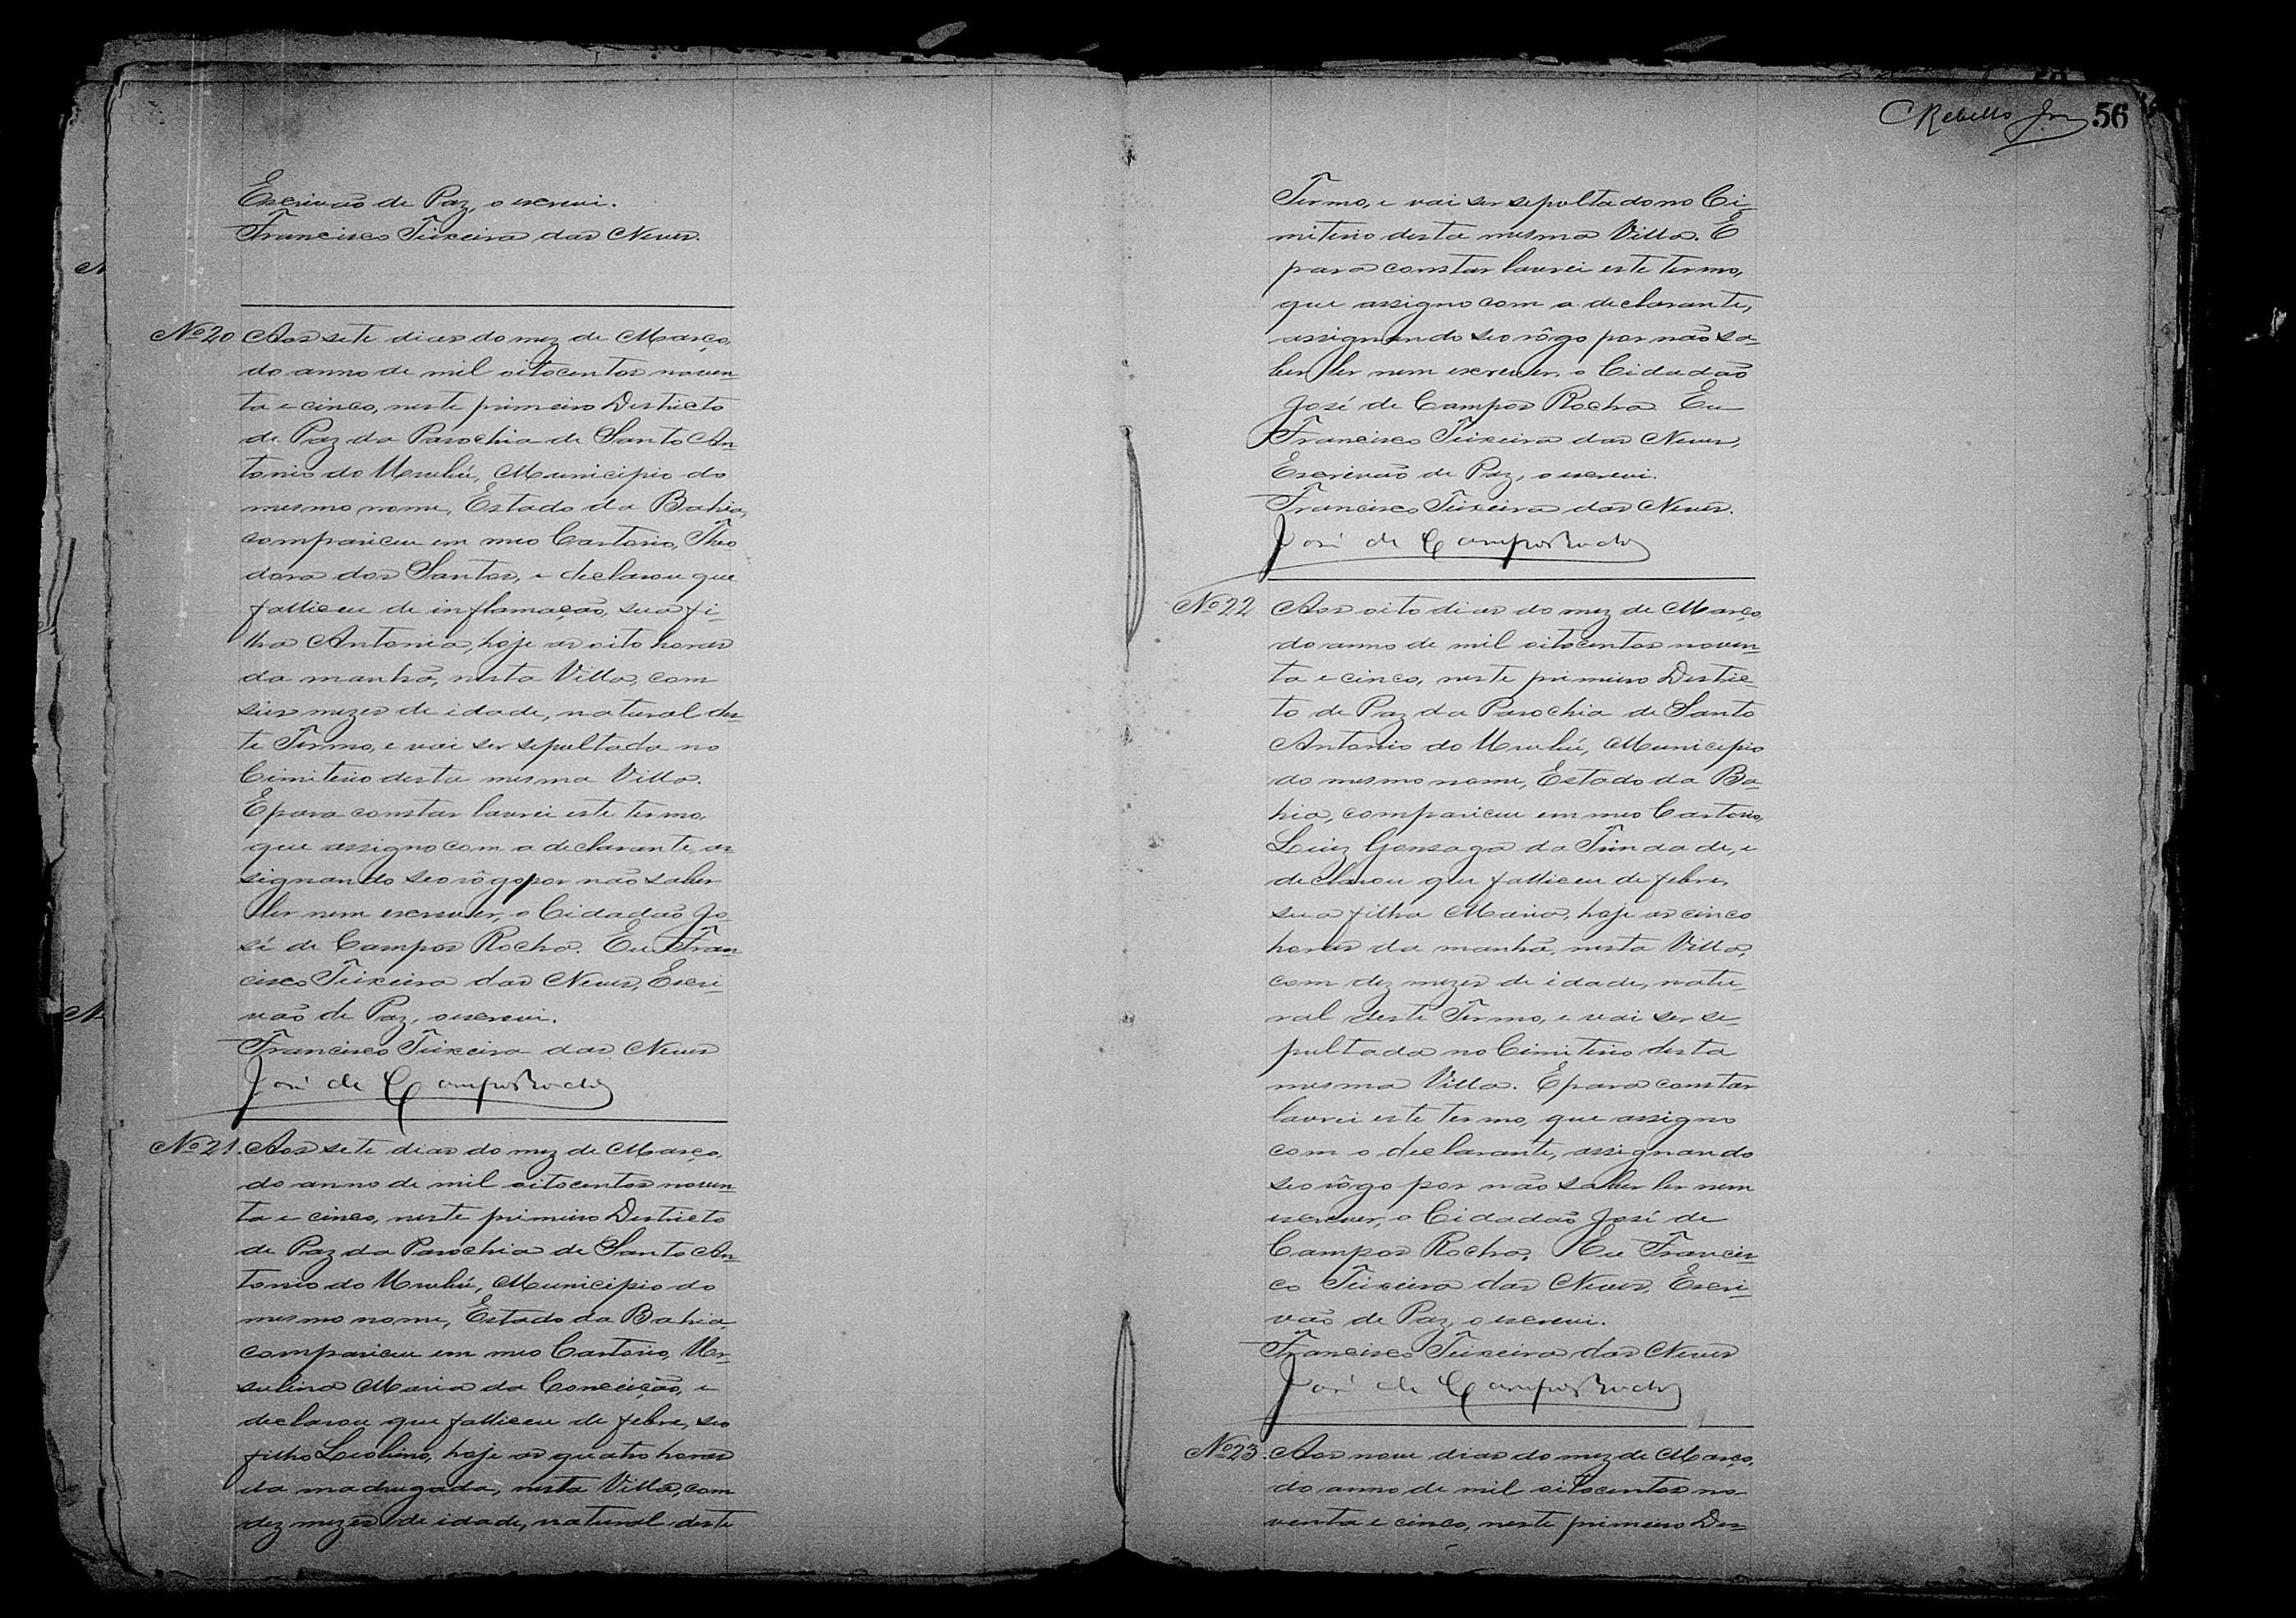 Escrivão de Paz, o escrevi.
Francisco Teixeira das Neves.
Nº 20 Aos sete dias do mez de Março,
do anno de mil oitocentos noven-
ta e cinco, neste primeiro Destricto
de Paz da Parochia de Santo An-
tonio do Urubú, Municipio do
mesmo nome, Estado da Bahia,
compareceu em meo Cartorio, Theo
dora dos Santos, e declarou que
falleceu de inflamação, sua fi-
lha Antonia, hoje as oito horas
da manhã, nesta Villa, com
seis mezes de idade, natural des-
te Termo, e vai ser sepultada no
Cimiterio desta mesma Villa.
E para constar lavrei este termo,
que assigno com a declarante, as-
signando seo rôgo por não saber
ler nem escrever, o Cidadão Jo-
sé de Campos Rocha. Eu Fran-
cisco Teixeira das Neves, Escri-
vão de Paz, o escrevi.
Francisco Teixeira das Neves
José de Campos Rocha
Nº 21. Aos sete dias do mez de Março,
do anno de mil oitocentos noven-
ta e cinco, neste primeiro Destricto
de Paz da Parochia de Santo An-
tonio do Urubú, Municipio do
mesmo nome, Estado da Bahia,
compareceu em meo Cartorio, Ur-
sulina Maria da Conceição, e
declarou que falleceu de febre, seo
filho Leolino, hoje as quatro horas
da madrugada, nesta Villa, com
dez mezes de idade, natural deste
Rebello Jor 56
Termo, e vai ser sepultado no Ci-
miterio desta mesma Villa. E
para constar lavrei este termo,
que assigno com a declarante,
assignando seo rôgo por não sa-
ber ler nem escrever, o Cidadão
José de Campos Rocha. Eu
Francisco Teixeira das Neves,
Escrivão de Paz, o escrevi.
Francisco Teixeira das Neves.
José de Campos Rocha
Nº 22 Aos oito dias do mez de Março,
do anno de mil oitocentos noven-
ta e cinco, neste primeiro Destric-
to de Paz da Parochia de Santo
Antonio do Urubú, Municipio
do mesmo nome, Estado da Ba-
hia, compareceu em meo Cartorio,
Luiz Gonsaga da Trindade, e
declarou que falleceu de febre,
sua filha Maria, hoje as cinco
horas da manhã, nesta Villa,
com dez mezes de idade, natu-
ral deste Termo, e vai ser se-
pultada no Cimiterio desta
mesma Villa. E para constar
lavrei este termo, que assigno
com o declarante, assignando
seo rôgo por não saber ler nem
escrever, o Cidadão José de
Campos Rocha. Eu Francis-
co Teixeira das Neves, Escri-
vão de Paz, o escrevi.
Francisco Teixeira das Neves
José de Campos Rocha
Nº 23. Aos nove dias do mez de Março,
do anno de mil oitocentos no-
venta e cinco, neste primeiro Des-